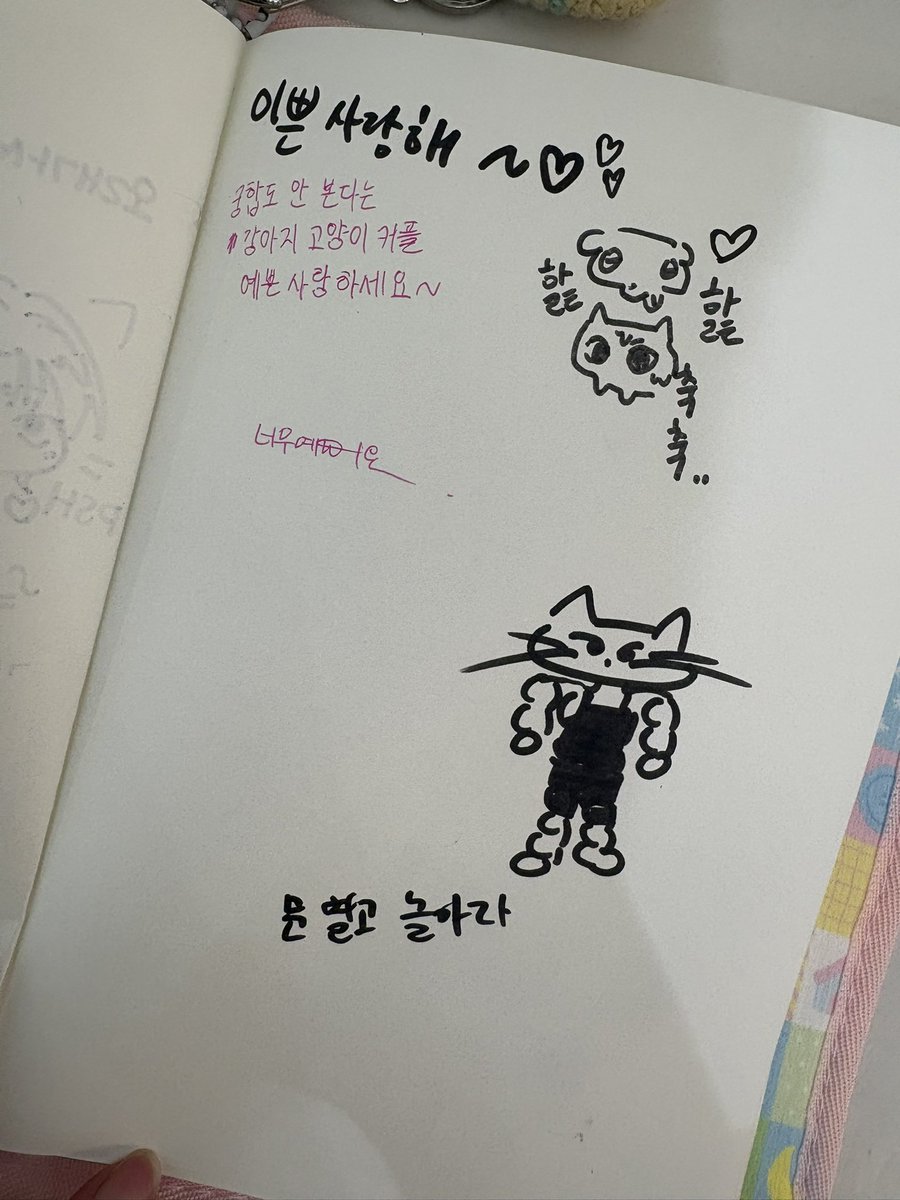 이쁜 사랑해 ~♡♡♡
궁합도 안 본다는
강아지 고양이 커플
예쁜 사랑하세요~
할트
할트
축
축..
너무예뻐요
문 열고 놀아라